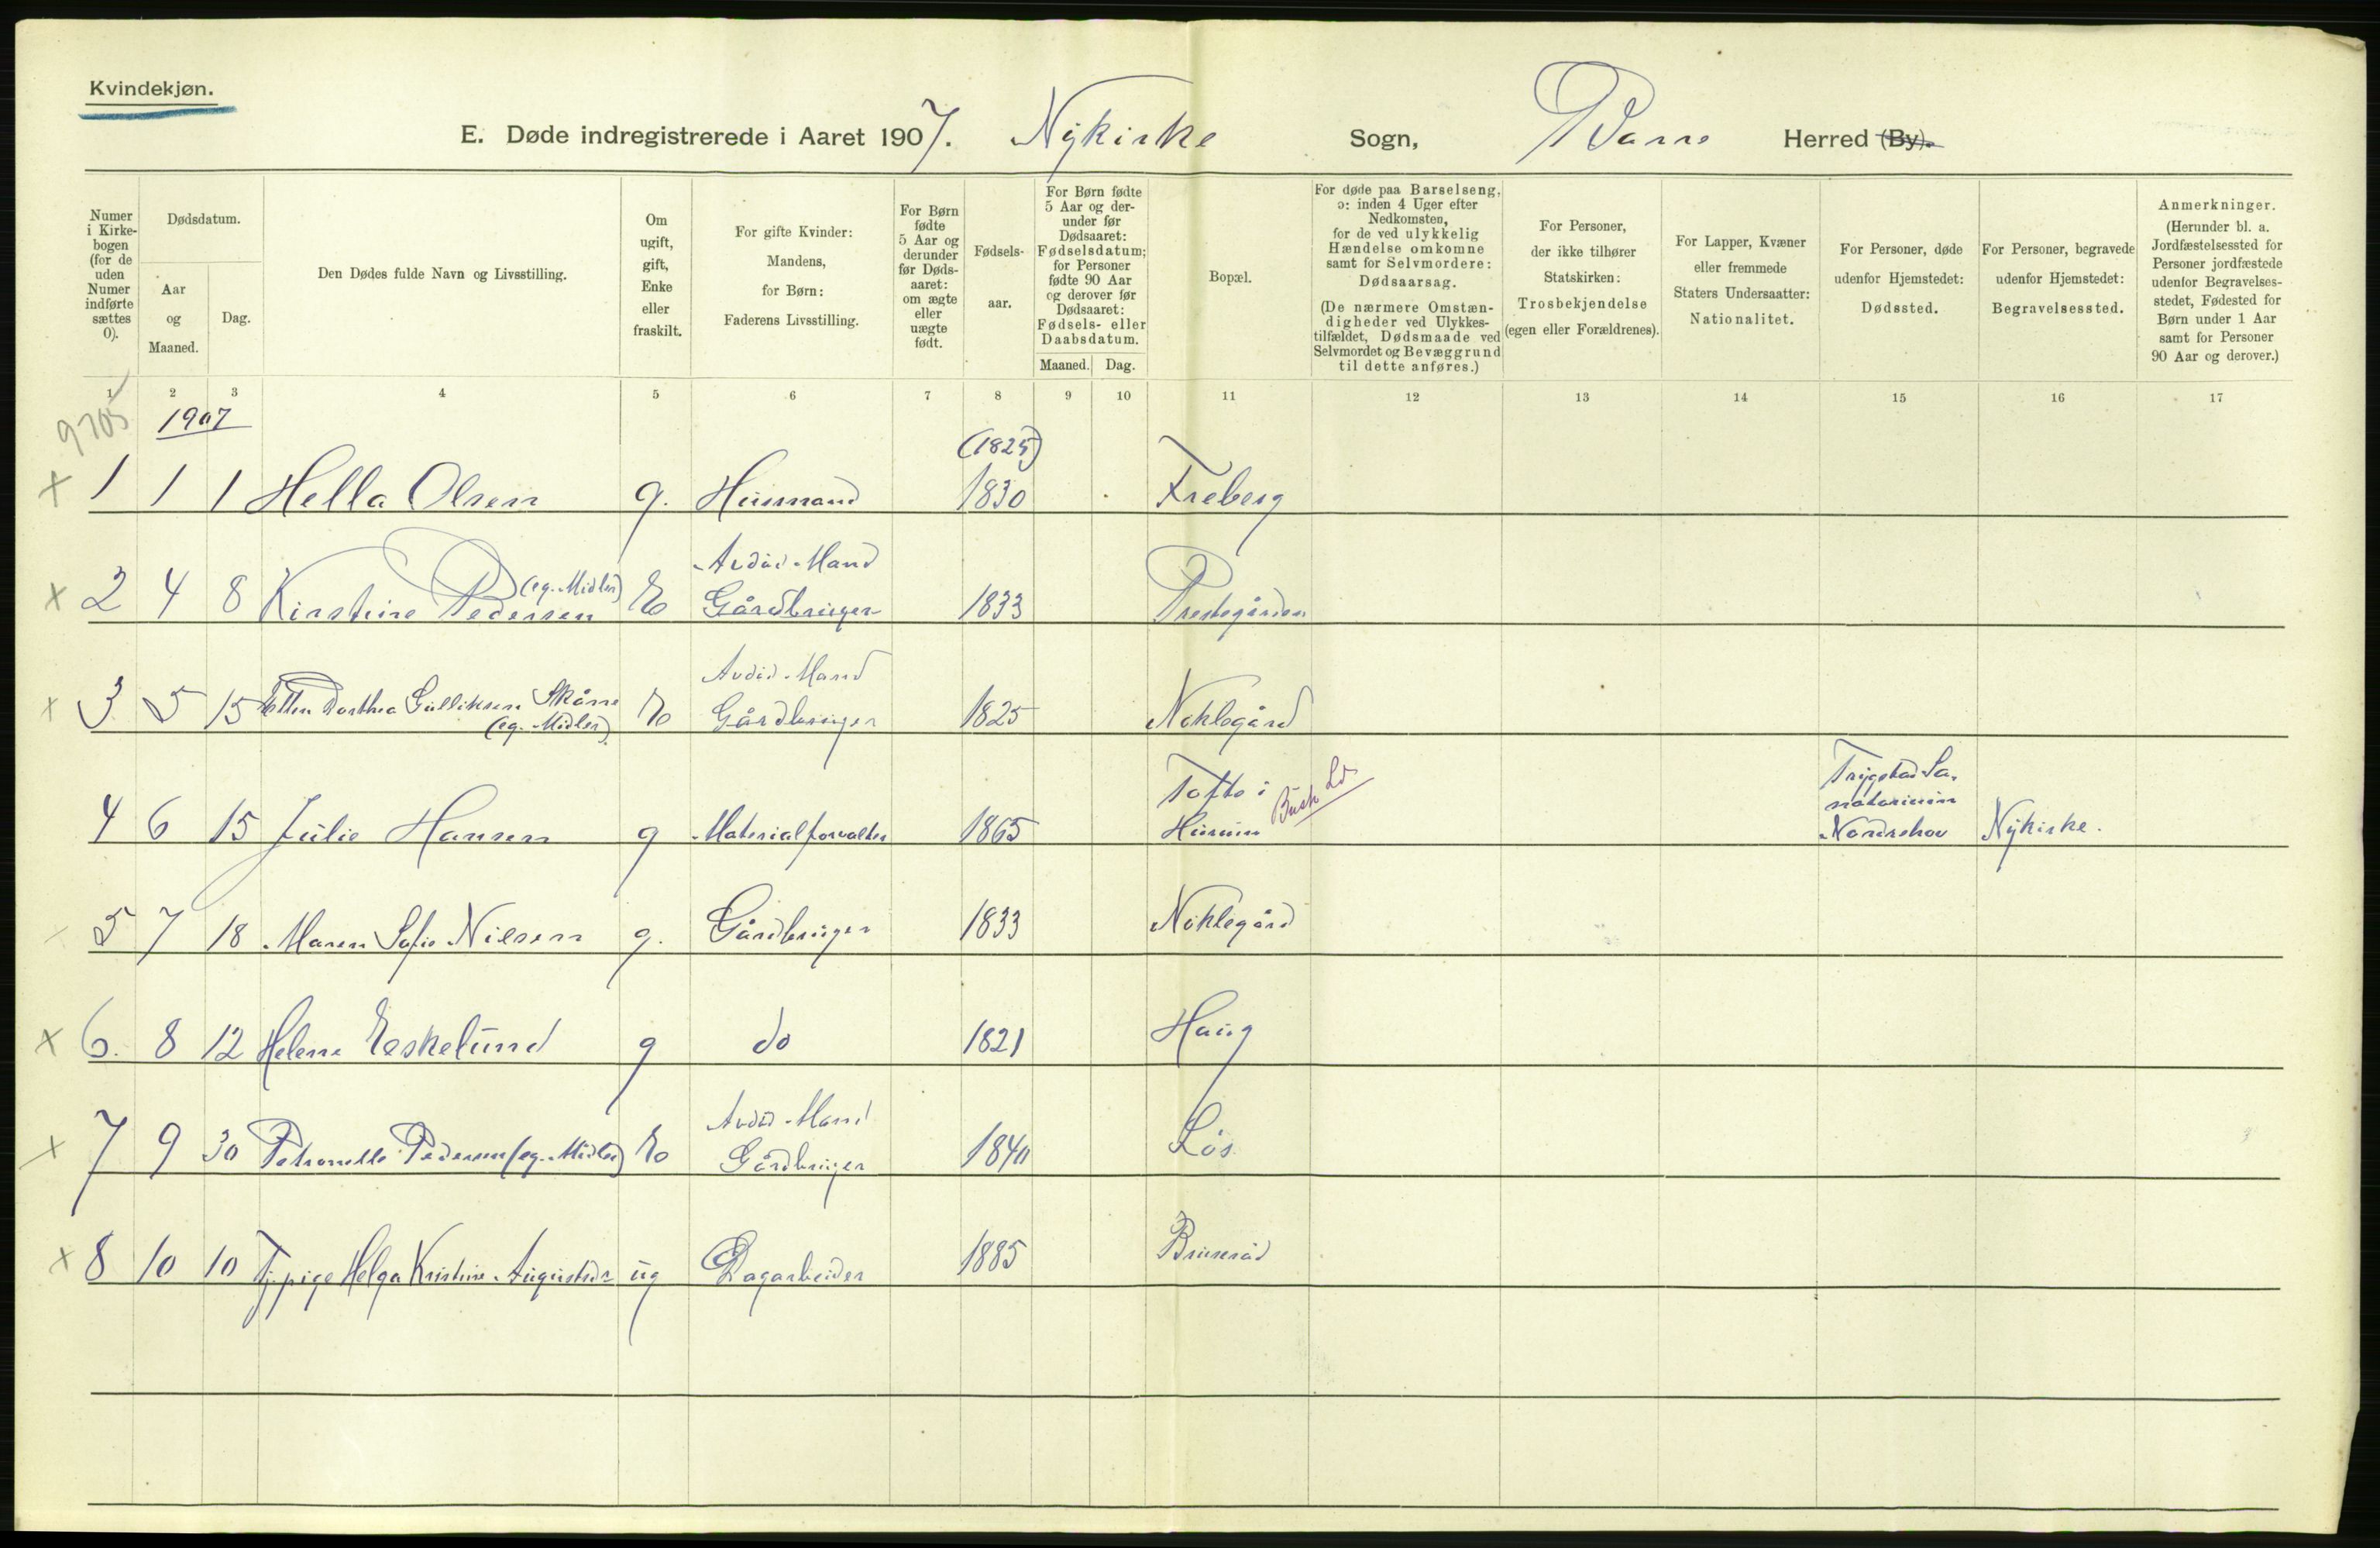 Kvindekjøn.
E. Døde indregistrerede i Aaret 1907. Nykirke Sogn, Borre Herred (By).
Numer i Kirkebogen (for de uden Numer indførte sættes 0).
Dødsdatum.
Aar og Maaned.
Dag.
Den Dødes fulde Navn og Livsstilling.
Om ugift, gift, Enke eller fraskilt.
For gifte Kvinder: Mandens, for Børn: Faderens Livsstilling.
For Børn fødte 5 Aar og derunder før Dødsaaret: om ægte eller uægte født.
Fødselsaar.
For Børn fødte 5 Aar og derunder før Dødsaaret: Fødselsdatum; for Personer fødte 90 Aar og derover før Dødsaaret: Fødsels- eller Daabsdatum.
Maaned. Dag.
Bopæl.
For døde paa Barselseng, ɔ: inden 4 Uger efter Nedkomsten, for de ved ulykkelig Hændelse omkomne samt for Selvmordere: Dødsaarsag.
(De nærmere Omstændigheder ved Ulykkestilfældet, Dødsmaade ved Selvmordet og Bevæggrund til dette anføres.)
For Personer, der ikke tilhører Statskirken: Trosbekjendelse (egen eller Forældrenes).
For Lapper, Kvæner eller fremmede Staters Undersaatter: Nationalitet.
For Personer, døde udenfor Hjemstedet: Dødssted.
For Personer, begravede udenfor Hjemstedet: Begravelsessted.
Anmerkninger. (Herunder bl. a. Jordfæstelsessted for Personer jordfæstede udenfor Begravelsesstedet, Fødested for Børn under 1 Aar samt for Personer 90 Aar og derover.)
1 2 3 4 5 6 7 8 9 10 11 12 13 14 15 16 17
9705
1907
(1825)
x 1 1 1 Hella Olsen g. Husmand 1830 Freberg
Avdød Mand
x 2 4 8 Kirstine Pedersen (eg. Midler) E Gårdbruger 1833 Prestegården
Avdød Mand
x 3 5 15 Ellen Dorthea Gulliksen Skåne E Gårdbruger 1825 Neklegård
(eg. Midler).
Tofte i Busk Ld Trygstad Sa-
natorium
4 6 15 Julie Hansen g Materialforvalter 1865 Hurum Norderhov Nykirke.
5 7 18 Maren Sofie Nilsen g. Gårdbruger 1833 Neklegård
x 6. 8 12 Helene Eskelund g do 1821 Haug
Avdød Mand
x 7 9 30 Petronelle Pedersen (eg. Midler) E Gårdbruger 1840 Løs
x 8 10 10 Tj.pige Helga Kristine Augustsdr ug Dagarbeider 1885 Bruserød